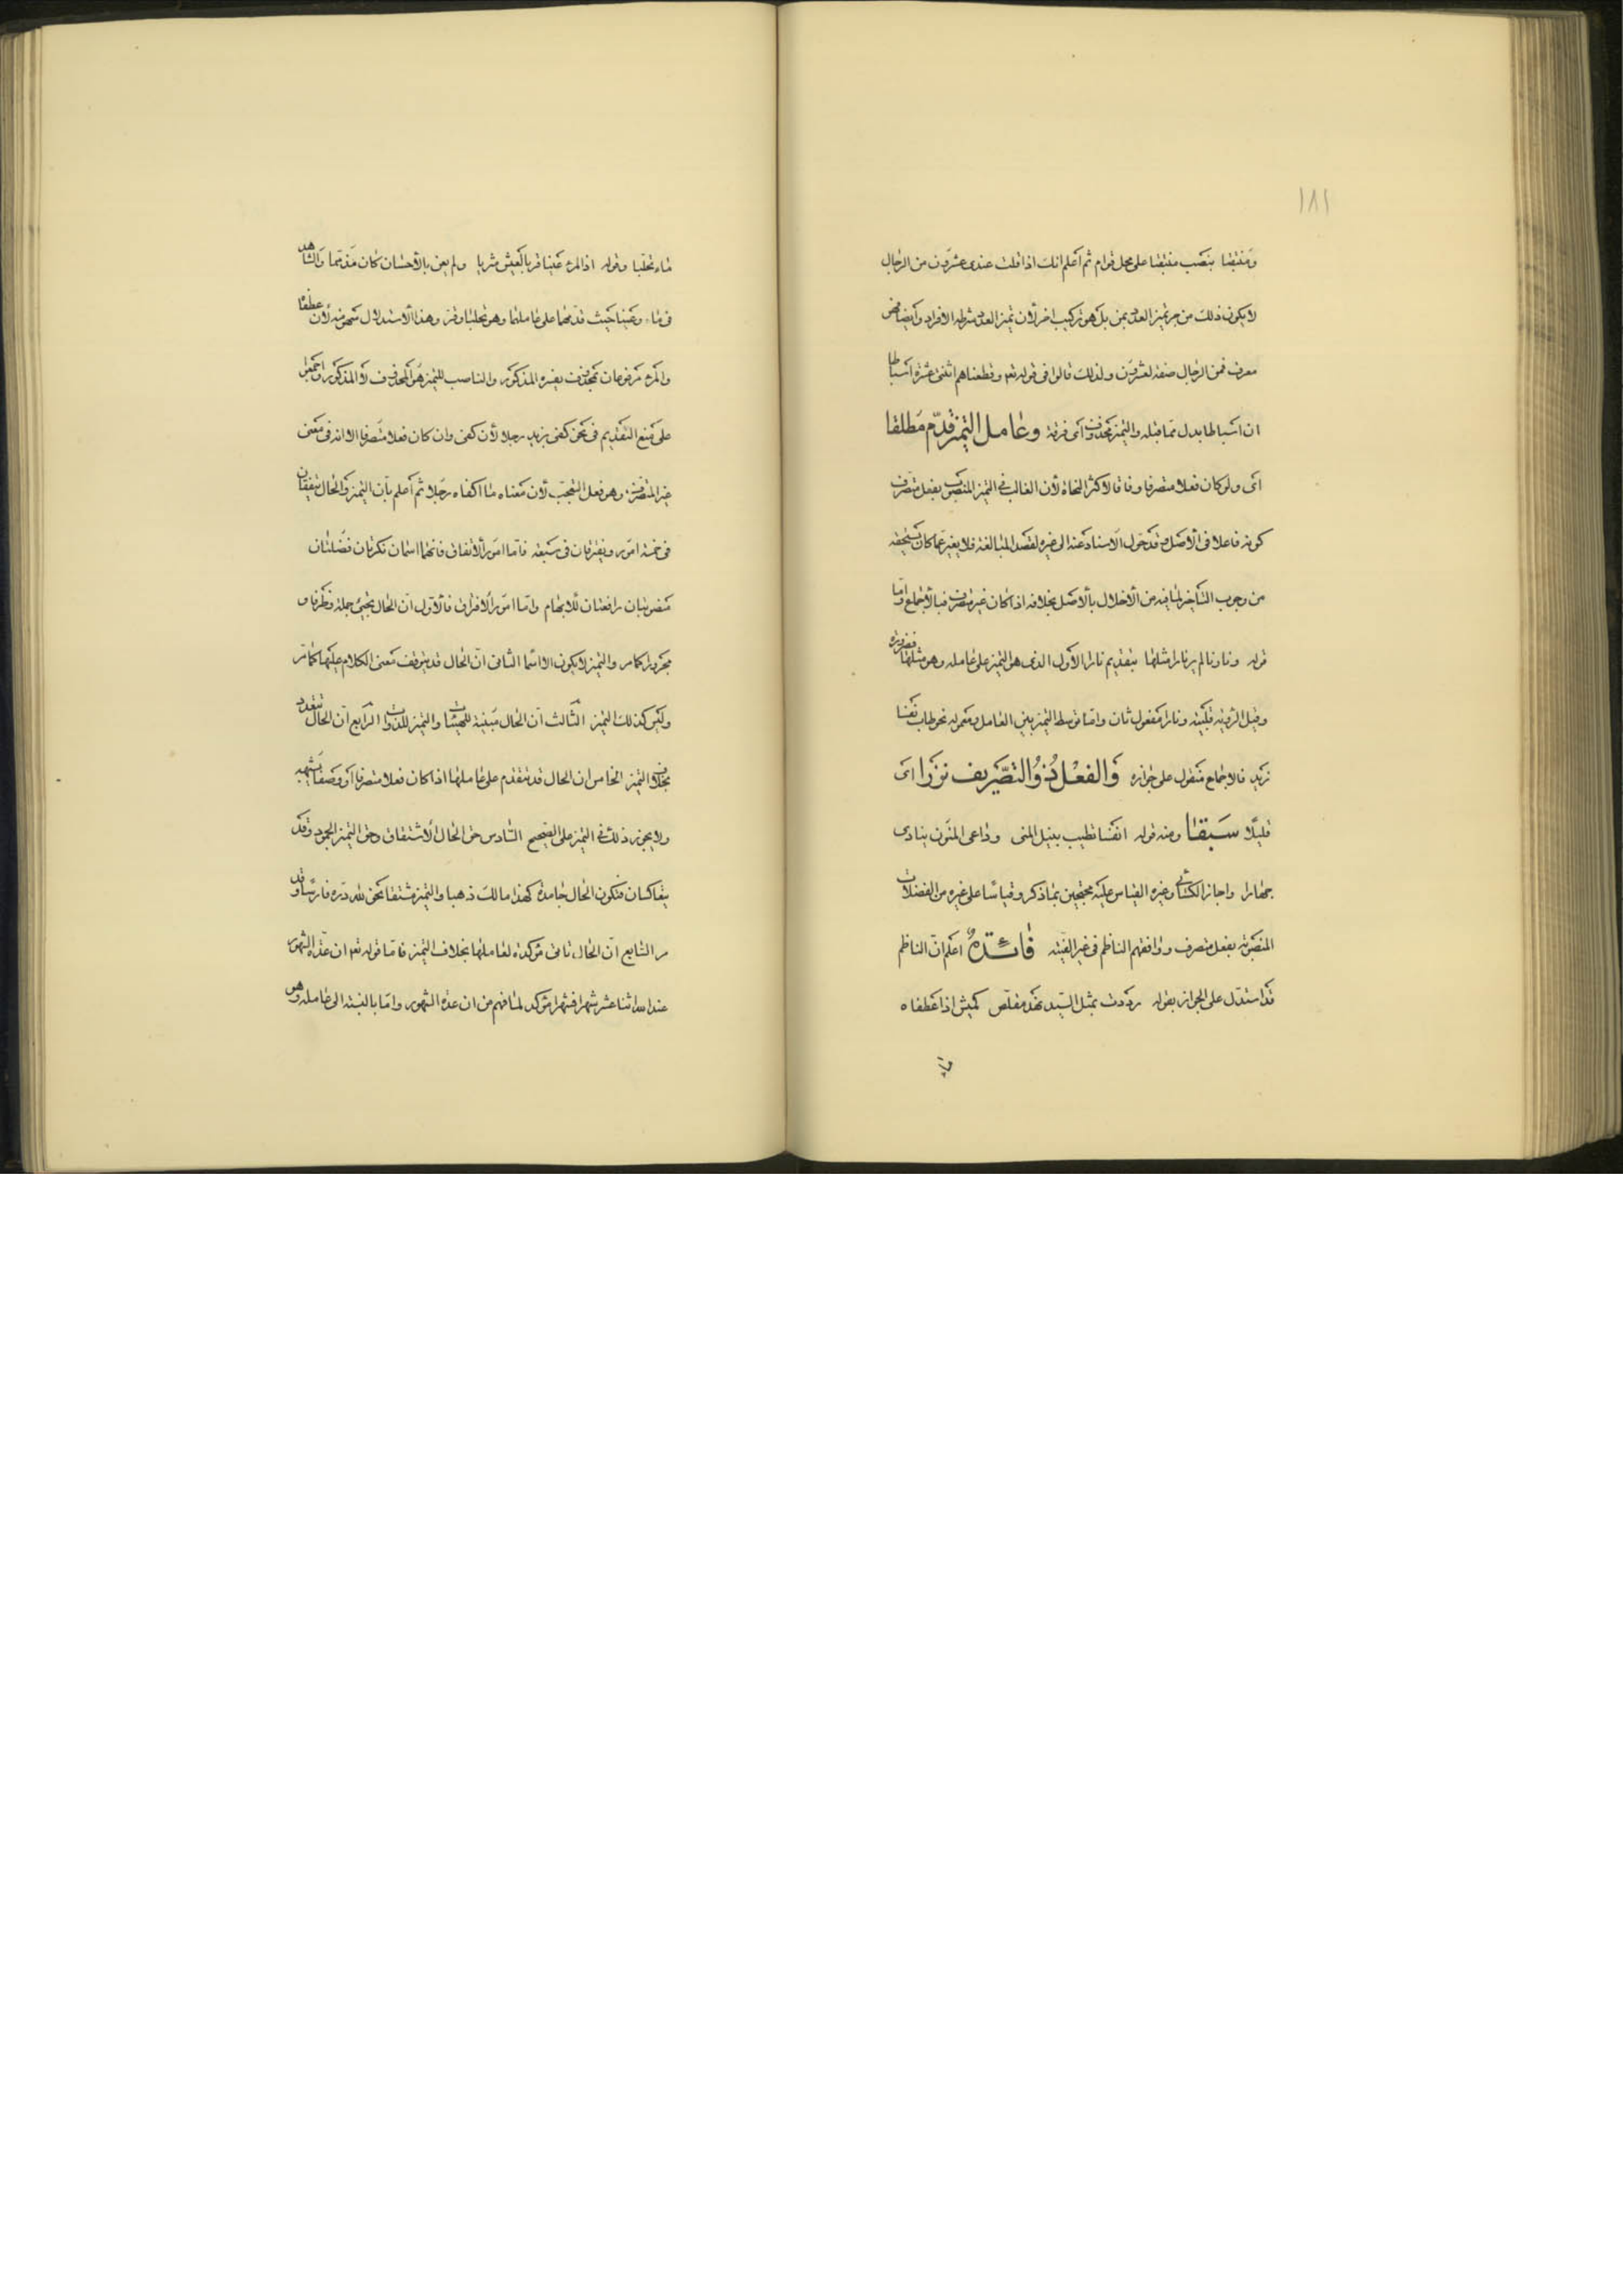 ١٨١
ومنتقبا بنصب منتقبا على محل قوام ثم اعلم انك اذا قلت عندى عشرون من الرجال
لا يكون ذلك من جر تميز العدد بمن بل هو تركيب اخر لأن تميز العدد شرطه الافراد وايضا فهو
معرف فمن الرجال صفة لعشرون ولذلك قالوا فى قوله تعم وقطعناهم اثنى عشرة اسباطا
ان اسباطا بدل مما قبله والتميز محذوف اى فرقة وعامل التميز قدّم مطلقا
اى ولو كان فعلا متصرفا وفاقا لاكثر النحاة لأن الغالب فى التميز المنصوب بفعل متصرف
كونه فاعلا فى الأصل وقد حول الاسناد عنه الى غيره لقصد المبالغة فلا يغير عما كان يستحقه
من وجوب التأخير لما فيه من الاخلال بالأصل بخلافه اذا كان غير متصرف فبالأجماع واما
قوله ونارنا لم ير نارا مثلها بتقديم نارا الأول الذى هو التميز على عامله وهو مثلها فضرورة
وقيل الرؤية قلبية ونارا مفعول ثان واما توسط التميز بين العامل ومعموله نحو طاب نفسا
زيد فالاجماع منقول على جوازه والفعل ذو التصريف نزرا اى
قليلا سبقا ومنه قوله انفسا تطيب بنيل المنى وداعى المنون ينادى
جهارا واجاز الكسائى وغيره القياس عليه محتجين بما ذكر وقياسا على غيره من الفضلات
المنصوبة بفعل متصرف ووافقهم الناظم فى غير الفيته فائدة اعلم ان الناظم
قد استدل على الجواز بقوله رددت بمثل السيد نهد مقلص كميش اذا عطفاه
ماء
ماء تحلبا وقوله اذا المرء عينا قر بالعيش مثريا ولم يعن بالأحسان كان مذمما والشاهد
فى ماء وعينا حيث قدمهما على عاملهما وهو تحلبا وقر وهذا الاستدلال سهو منه لأن عطفاه
والمرء مرفوعان بمحذوف يفسره المذكور والناصب للتميز هو المحذوف لا المذكور واجمعوا
على منع التقديم فى نحو كفى بزيد رجلا لأن كفى وان كان فعلا متصرفا الا انه فى معنى
غير المتصرف وهو فعل التعجب لأن معناه ما اكفاه رجلا ثم اعلم بأن التميز والحال يتفقان
فى خمسة امور ويفترقان فى سبعة فاما امور الأتفاق فانهما اسمان نكرتان فضلتان
منصوبتان رافعتان للابهام واما امور الافتراق فالأول ان الحال يجيئ جملة وظرفا و
مجرورا كما مر والتميز لا يكون الا اسما الثانى ان الحال قد يتوقف معنى الكلام عليها كما مر
وليس كذلك التميز الثالث ان الحال مبنية للهيئات والتميز للذوات الرابع ان الحال تتعدد
بخلاف التميز الخامس ان الحال قد تتقدم على عاملها اذا كان فعلا متصرفا او وصفا يشبهه
ولا يجوز ذلك فى التميز على الصحيح السادس حق الحال الاشتقاق وحق التميز الجمود وقد
يتعاكسان فتكون الحال جامدة كهذا مالك ذهبا والتميز مشتقا نحو لله دره فارسا وقد
مر السابع ان الحال تاتى مؤكدة لعاملها بخلاف التميز فاما قوله تعم ان عدة الشهور
عند الله اثنا عشر شهرا فشهرا مؤكد لما فهم من ان عدة الشهور واما بالنسبة الى عامله وهو